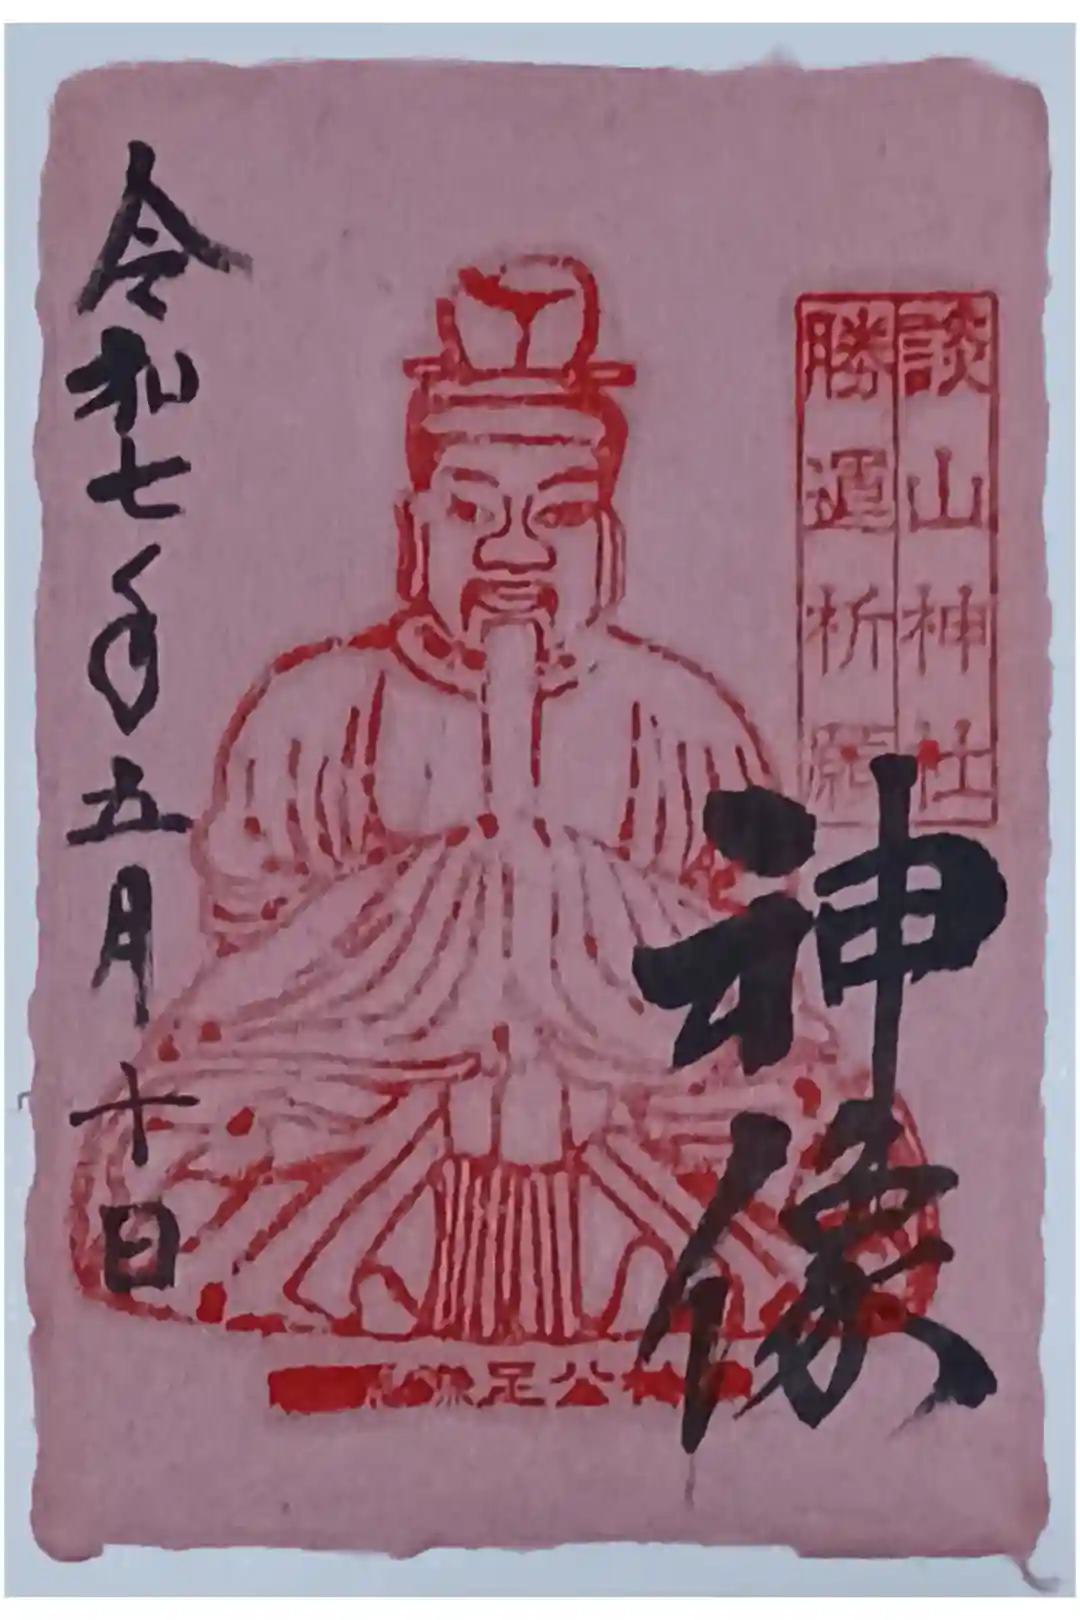 談山神社
勝運祈願
神像
令和七年五月十日
足公